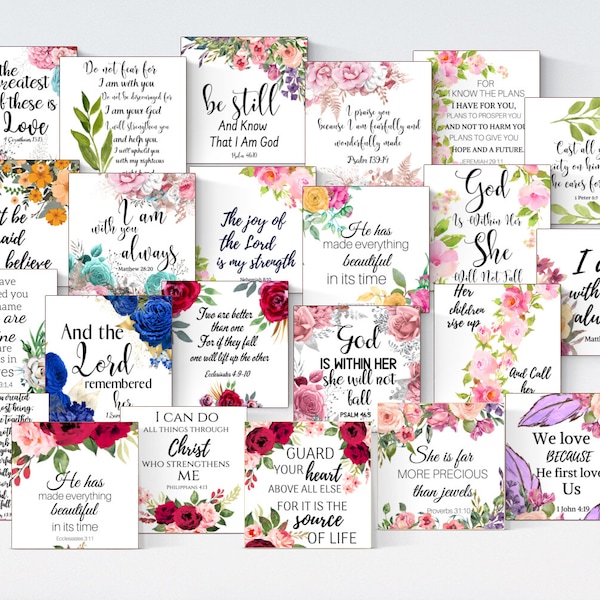 the
greatest
of these is
Love
Do not fear for
I am with you
Do not be discouraged for
I am your God
I will strengthen you
and help you
I will uphold you
with my righteous
be still
And Know
That I Am God
Psalm 46:10
I praise you
because I am fearfully and
wonderfully made
Psalm 139:14
FOR
I KNOW THE PLANS
I HAVE FOR YOU,
PLANS TO PROSPER YOU
AND NOT TO HARM YOU
PLANS TO GIVE YOU
HOPE AND A FUTURE.
JEREMIAH 29:11
Cast all y
on him
he cares fo
1 Peter 5:7
believe
I am
with you
always
Matthew 28:20
The joy of
the Lord
is my strength
He has
made everything
beautiful
in its time
God
Is Within Her
She
Will Not Fall
with
And the
Lord
remembered
her
Two are better
than one
For if they fall
one will lift up the other
Ecclesiastes 4:9-10
God
IS WITHIN HER
she will not
fall
PSALM 46:5
Her
children
rise up
And Call
her
He has
made everything
beautiful
in its time
Ecclesiastes 3:11
I CAN DO
ALL THINGS THROUGH
Christ
WHO STRENGTHENS
ME
PHILIPPIANS 4:13
GUARD
YOUR heart
ABOVE ALL ELSE
FOR IT IS THE
source
OF LIFE
She is far
MORE PRECIOUS
than jewels
Proverbs 31:10
We love
BECAUSE
He first loved
Us
1 John 4:19